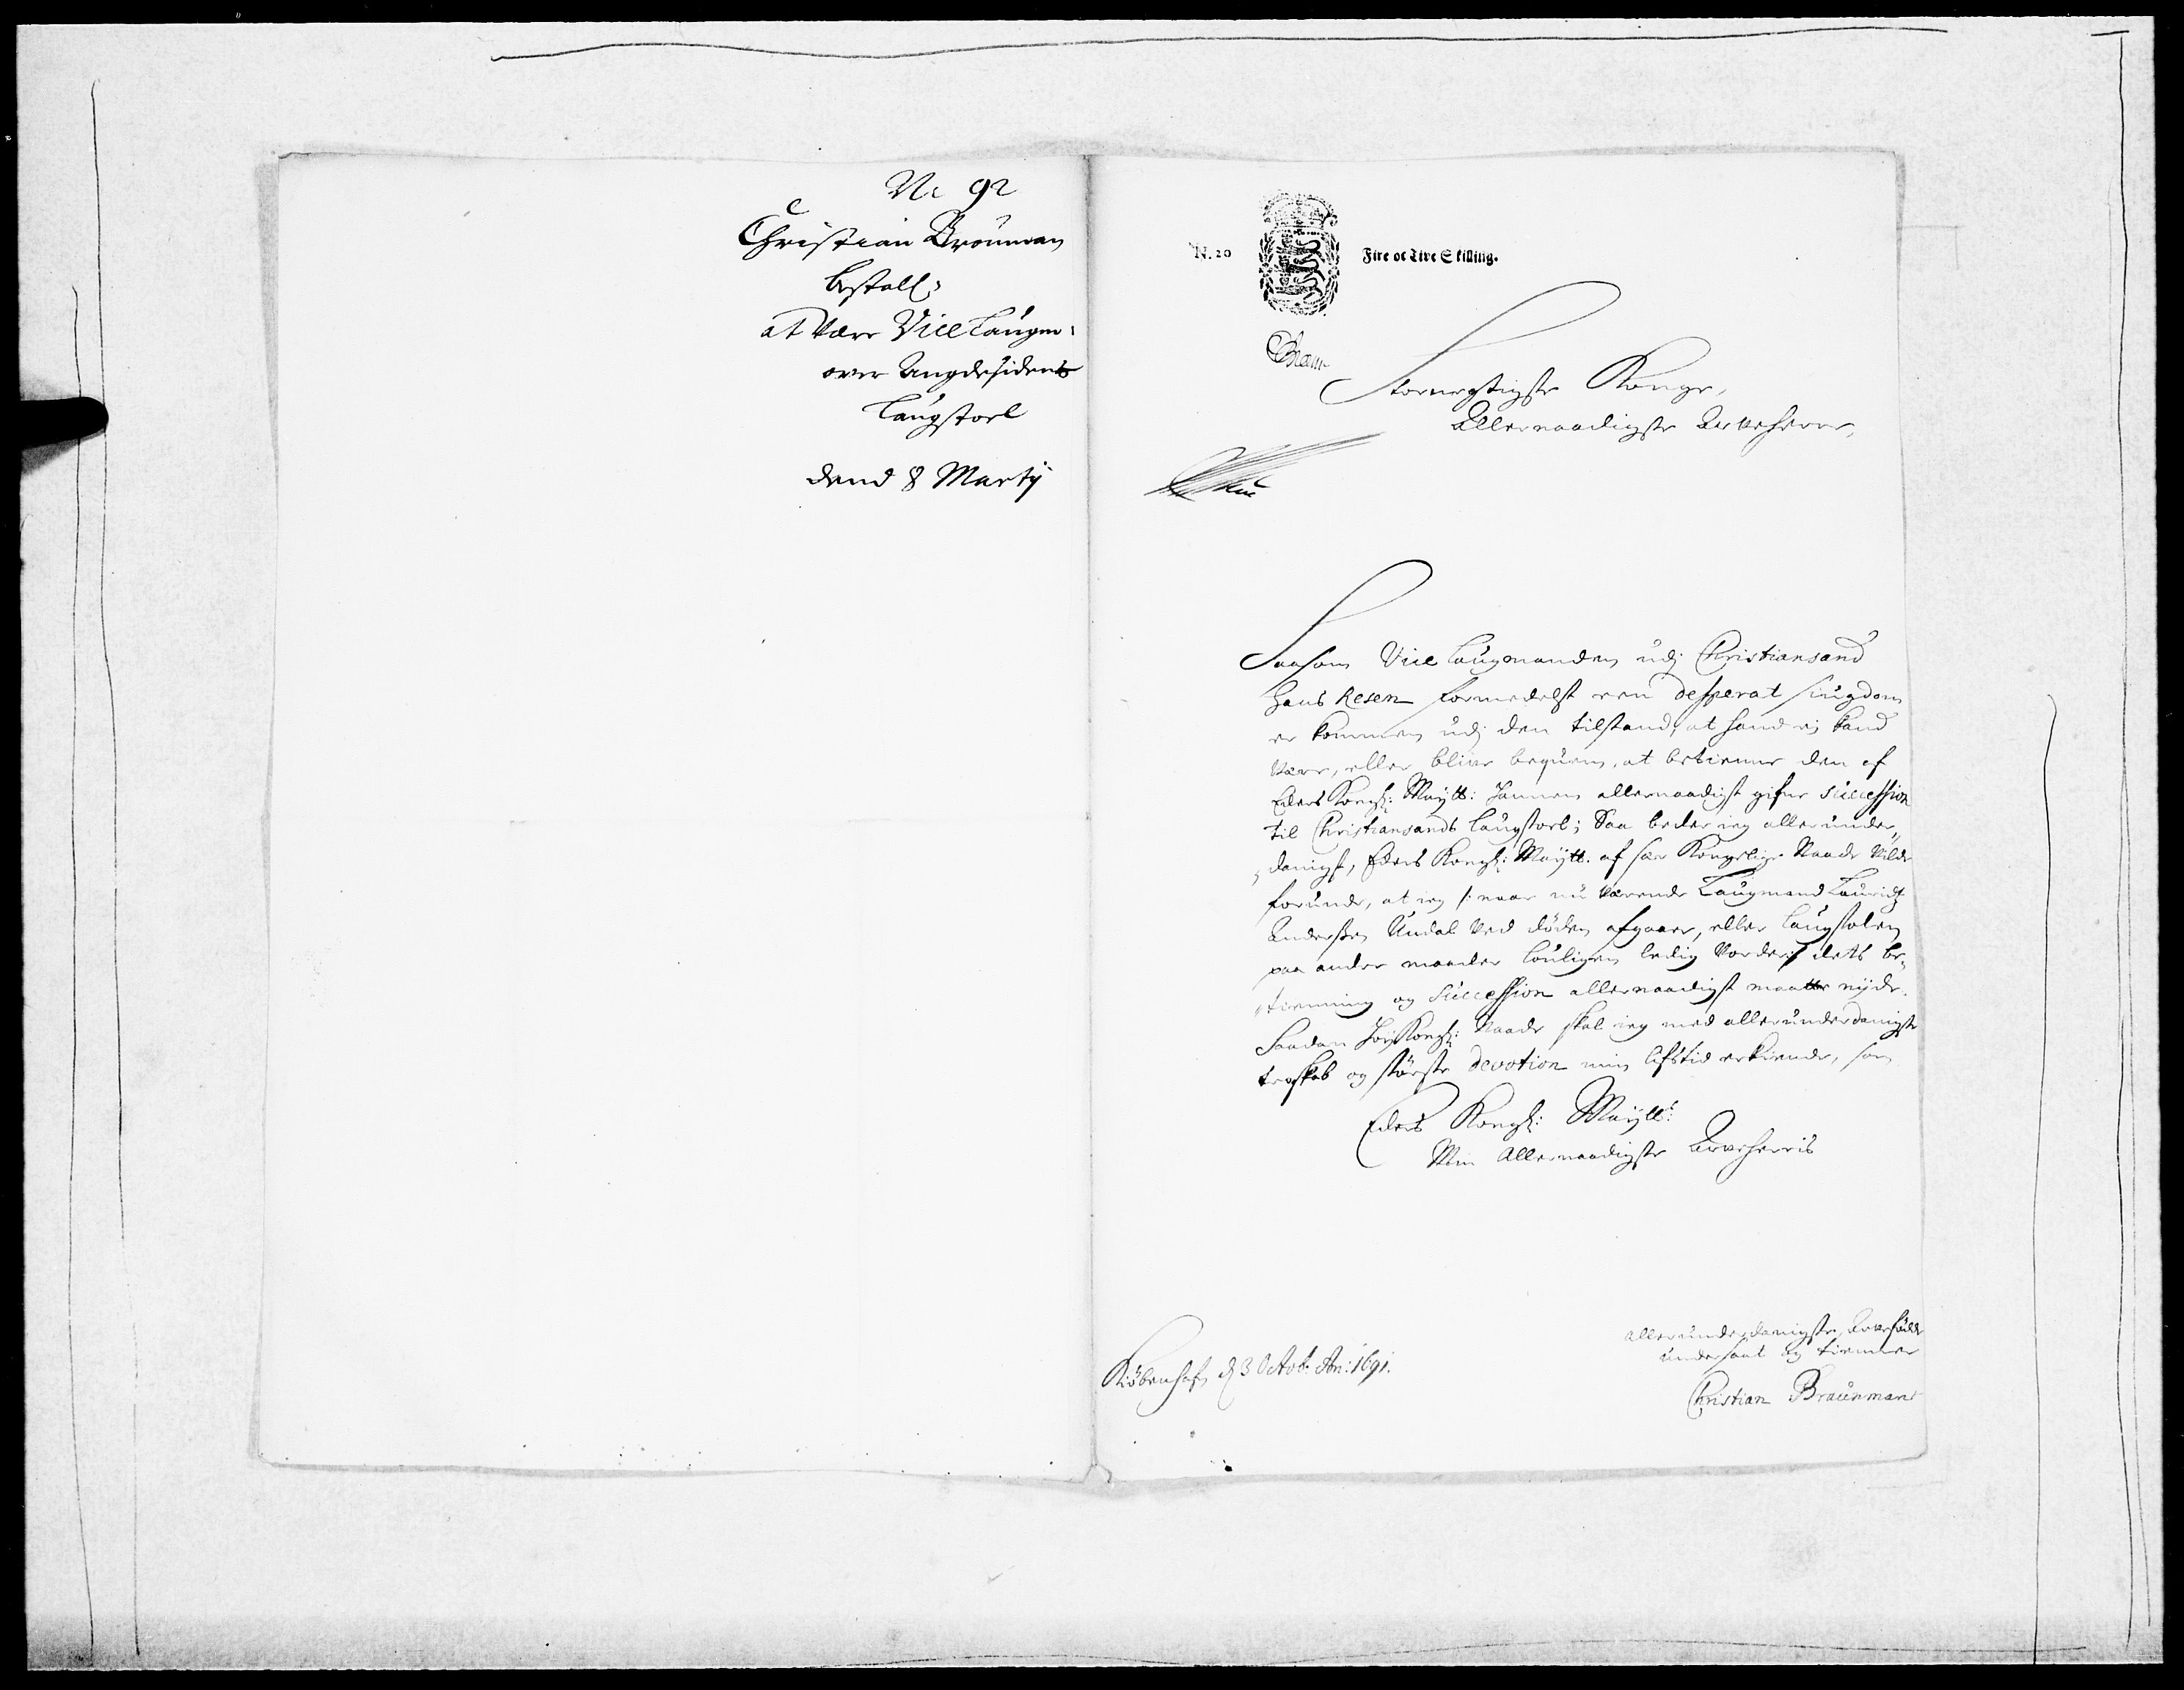 No 92
Christian Brouman
bestall:
at være Vice Laugm:
over Angdesidens
Laugstoel
dend 8 Martij
N. 20
Fire oc Tive Skilling.
Stormegtigste Konge,
Allernaadigste Arveherre,
Saasom Vice Laugmanden udj Christiansand
Hans Resen formedelst een desperat siugdom
er kommen udj den tilstand, at hand ej kand
være, eller blive beqvem, at betienne den af
Eders Kongl: Maytt: hannem allernaadigst gifne succession
til Christiansands laugstoel; Saa beder ieg allerunder„
„danigst, Eders Kongl: Maytt. af sær Kongelige Naade vilde
forunde, at ieg /: naar nu værende Laugmand Lauridtz
Anderssen Undal ved døden afgaaer, eller laugstolen
paa andre maader louligen ledig vorder :/ dets be„
„tienning og Succession allernaadigst maatte nyde.
Saadan høy Kongl: Naade skal ieg med allerunderdanigste
troskab og største devotion min lifstid erkiende, som
Eders Kongl: Maytts:
Min Allernaadigste Arveherris
allerunderdanigste, Arvefødde
undersaat og tienner
Christian Braunman
Kiøbenhafn d 3 Octob: An: 1691.